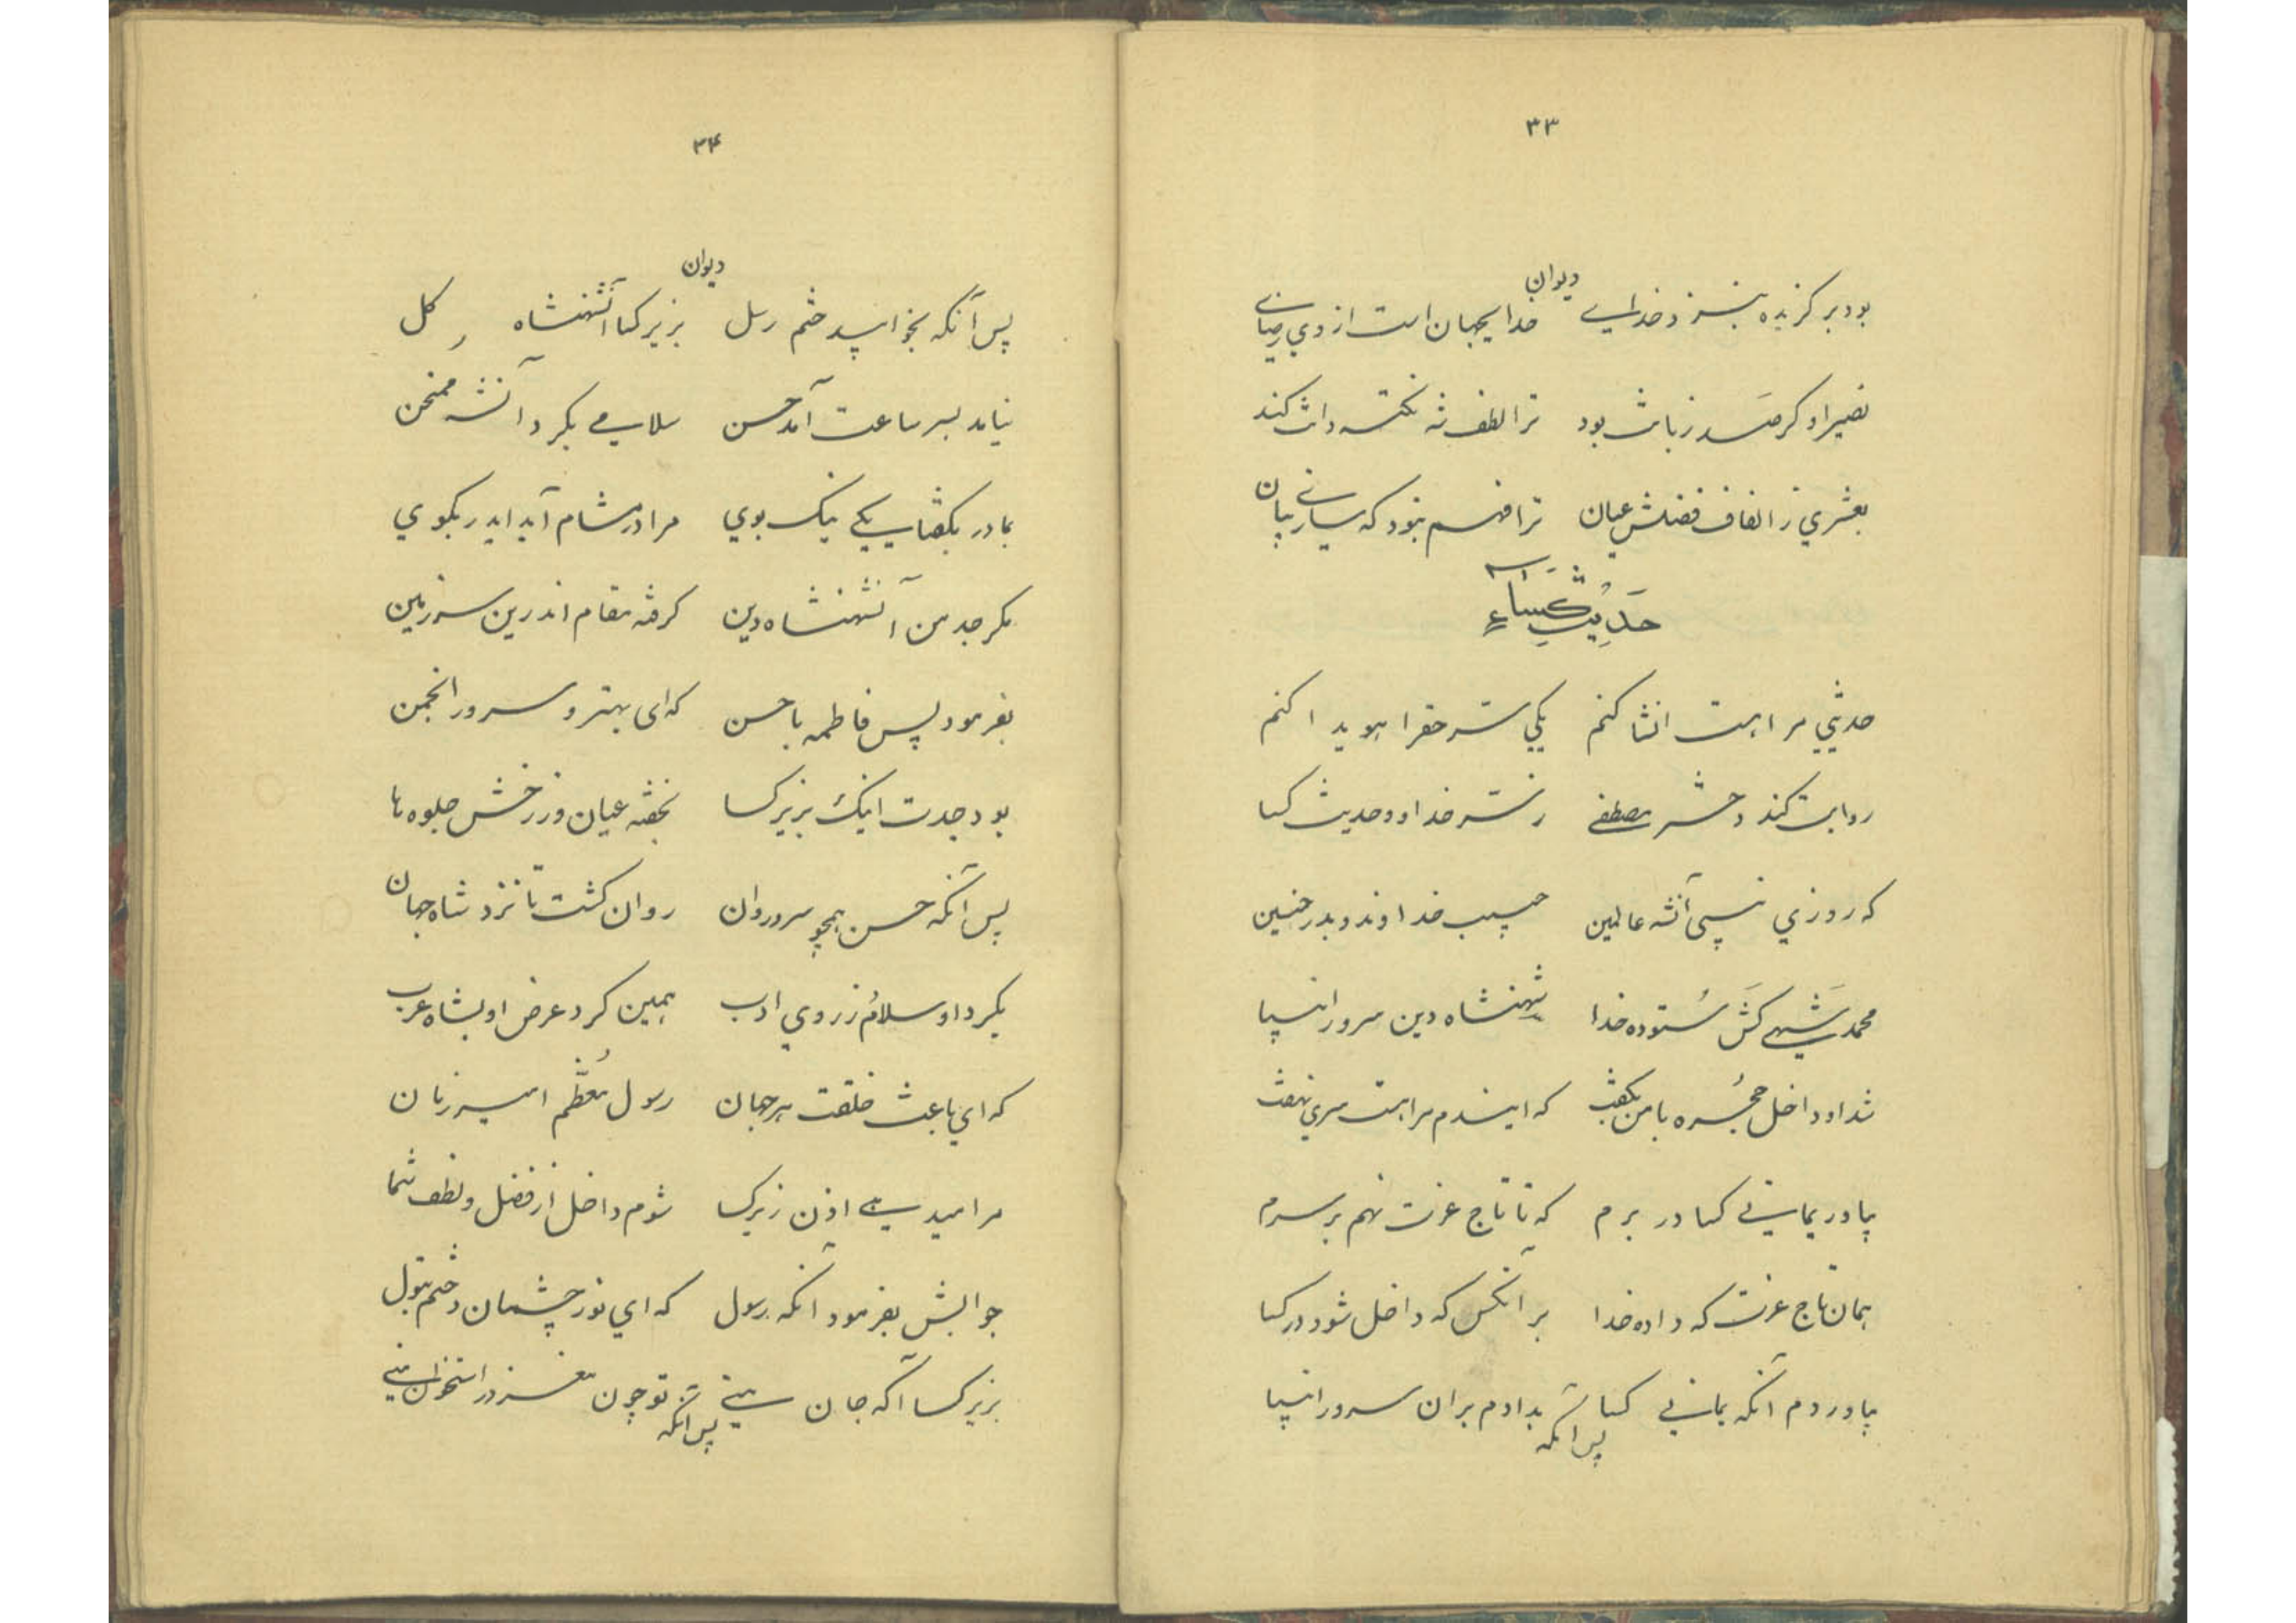 ۳۳
دیوان
بود برگزیده بنزد خدای خدای جهان است از وی رضای
نصیر او گر صد زبانت بود ترا لطف شه نکته دانت کند
بعشری ز الفاف فضلش عیان ترا فهم نبود که سازی بیان
حدیث کساء
حدیثی مرا هست انشا کنم یکی سر حقرا هویدا کنم
روایت کند دختر مصطفی ز سر خدا و حدیث کسا
که روزی نبی آنشه عالمین حبیب خداوند و بدر حنین
محمد شهی کش ستوده خدا شهنشاه دین سرور انبیا
شد او داخل حجره با من بگفت که ایندم مرا هست سری نهفت
بیاور یمانی کسا در برم که تا تاج عزت نهم بر سرم
همان تاج عزت که داده خدا بر آنکس که داخل شود در کسا
بیاوردم آنگه یمانی کسا بدادم بران سرور انبیا
پس آنگه
۳۴
دیوان
پس آنگه بخوابید ختم رسل بزیر کسا آنشهنشاه کل
نیامد بسر ساعت آمد حسن سلامی بکرد آنشه ممتحن
بمادر بگفتا یکی نیک بوی مرا در مشام آید ایدر بگوی
مگر جد من آنشهنشاه دین گرفته مقام اندرین سرزمین
بفرمود پس فاطمه با حسن که ای بهتر و سرور انجمن
بود جدت اینک بزیر کسا بخفته عیان وز رخش جلوه ها
پس آنگه حسن همچو سرو روان روان گشت تا نزد شاه جهان
بکرد او سلام ز روی ادب همین کرد عرض او بشاه عرب
که ای باعث خلقت هر جهان رسول معظم امیر زمان
مرا میدهی اذن زیر کسا شوم داخل از فضل و لطف شما
جوابش بفرمود آنگه رسول که ای نور چشمان دختم بتول
بزیر کسا آ که جان منی تو چون مغز در استخوان منی
پس آنگه